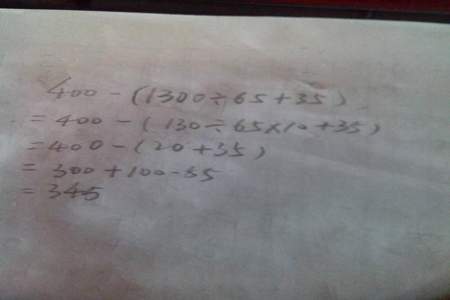 400-(1300÷65+35)
=400-(130÷65×10+35)
=400-(20+35)
=300+100-55
=345